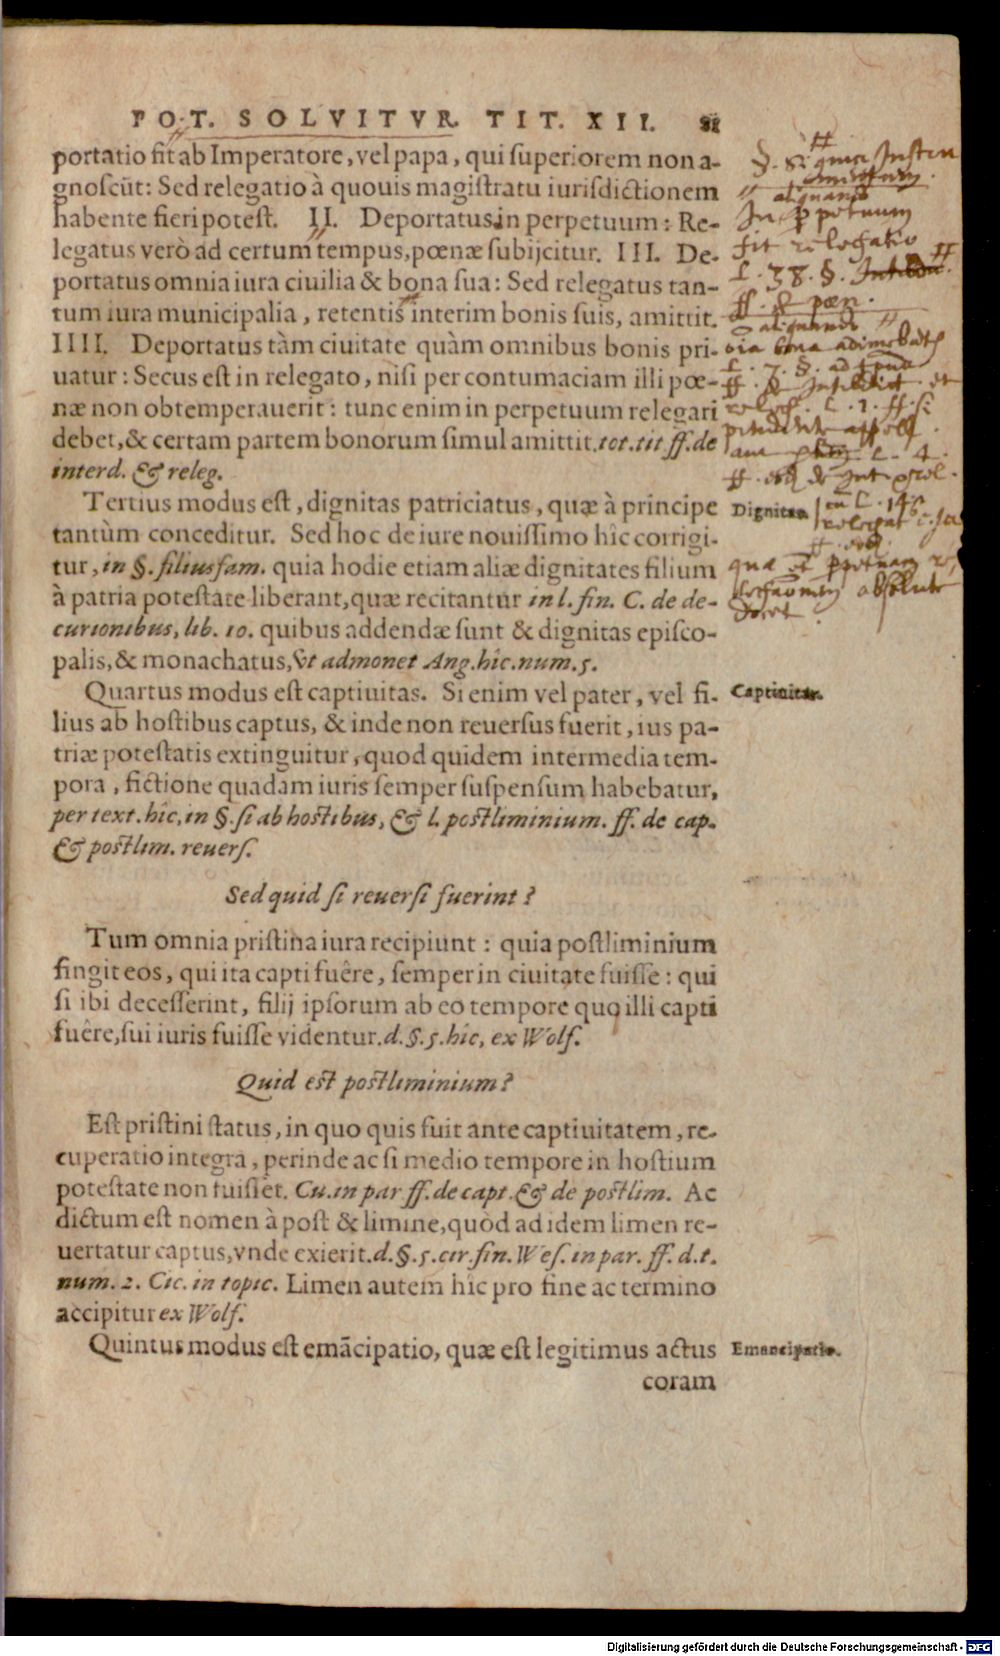 POT. SOLVITVR. TIT. XII. 81
portatio fit ab Imperatore, vel papa, qui superiorem non a-
gnoscūt: Sed relegatio à quouis magistratu iurisdictionem
habente fieri potest. II. Deportatus in perpetuum: Re-
legatus verò ad certum tempus, pœnæ subijcitur. III. De-
portatus omnia iura ciuilia & bona sua: Sed relegatus tan-
tum iura municipalia, retentis interim bonis suis, amittit.
IIII. Deportatus tàm ciuitate quàm omnibus bonis pri-
uatur: Secus est in relegato, nisi per contumaciam illi pœ-
næ non obtemperauerit: tunc enim in perpetuum relegari
debet, & certam partem bonorum simul amittit. tot. tit ff. de
interd. & releg.
Tertius modus est, dignitas patriciatus, quæ à principe
Dignitas
tantùm conceditur. Sed hoc de iure nouissimo hîc corrigi-
tur, in §. filiusfam. quia hodie etiam aliæ dignitates filium
à patria potestate liberant, quæ recitantur in l. fin. C. de de-
curionibus, lib. 10. quibus addendæ sunt & dignitas episco-
palis, & monachatus, vt admonet Ang. hîc. num. 5.
Quartus modus est captiuitas. Si enim vel pater, vel fi-
Captiuitas.
lius ab hostibus captus, & inde non reuersus fuerit, ius pa-
triæ potestatis extinguitur, quod quidem intermedia tem-
pora, fictione quadam iuris semper suspensum habebatur,
per text. hîc, in §. si ab hostibus, & l. postliminium. ff. de cap.
& postlim. reuers.
Sed quid si reuersi fuerint?
Tum omnia pristina iura recipiunt: quia postliminium
fingit eos, qui ita capti fuêre, semper in ciuitate fuisse: qui
si ibi decesserint, filij ipsorum ab eo tempore quo illi capti
fuêre, sui iuris fuisse videntur. d. §. 5. hîc, ex Wolf.
Quid est postliminium?
Est pristini status, in quo quis fuit ante captiuitatem, re-
cuperatio integra, perinde ac si medio tempore in hostium
potestate non fuisset. Cu. in par ff. de capt. & de postlim. Ac
dictum est nomen à post & limine, quòd ad idem limen re-
uertatur captus, vnde exierit. d. §. 5. cir. fin. Wes. in par. ff. d. t.
num. 2. Cic. in topic. Limen autem hîc pro fine ac termino
accipitur ex Wolf.
Quintus modus est emācipatio, quæ est legitimus actus
Emancipatio.
coram
Digitalisierung gefördert durch die Deutsche Forschungsgemeinschaft - DFG